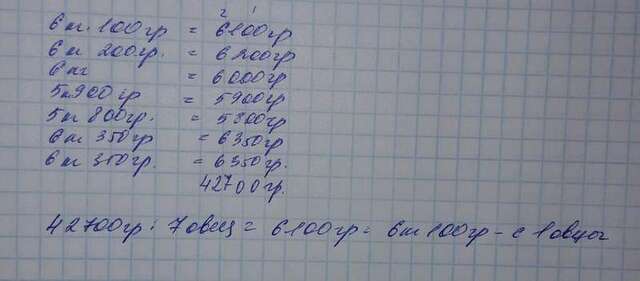 2 1
6кг 100гр = 6100гр
6кг 200гр. = 6200гр
6кг = 6000гр
5кг900гр = 5900гр
5кг 800гр. = 5800гр
6кг 350гр = 6350гр
6кг 350гр. = 6350гр.
42700гр.
42700гр : 7овец = 6100гр = 6кг100гр - с 1овцы